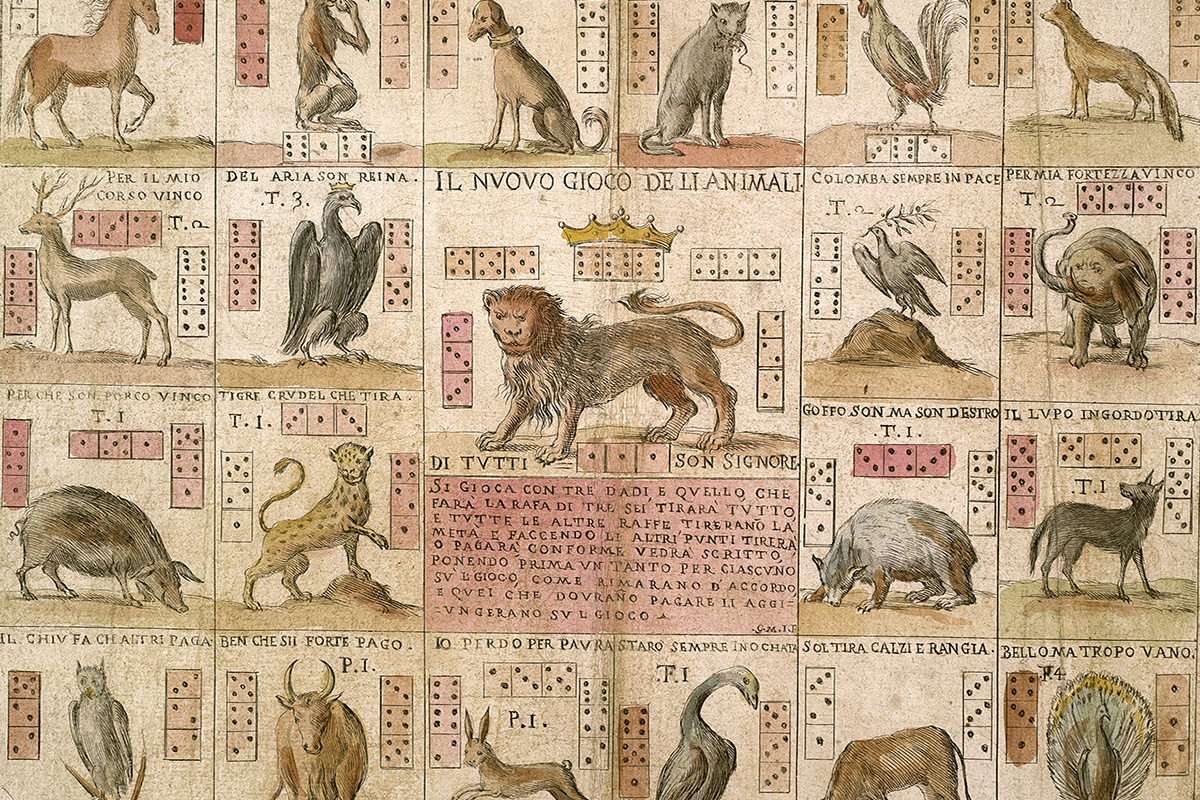 PER IL MIO
CORSO VINCO
T. 2
DEL ARIA SON REINA.
.T. 3.
IL NVOVO GIOCO DE LI ANIMALI.
COLOMBA SEMPRE IN PACE
.T. 2
PER MIA FORTEZZA VINCO
T. 2
PER CHE SON PORCO VINCO
T. I
TIGRE CRVDEL CHE TIRA.
T. I.
DI TVTTI
SON SIGNORE
GOFFO SON MA SON DESTRO
.T. I.
IL LVPO INGORDO TIRA
.T. I
SI GIOCA CON TRE DADI E QVELLO CHE
FARA LA RAFA DI TRE SEI TIRARA TVTTO
E TVTTE LE ALTRE RAFFE TIRERANO LA
META E FACCENDO LI ALTRI PVNTI TIRERA
O PAGARA CONFORME VEDRA SCRITTO,
PONENDO PRIMA VN TANTO PER CIASCVNO
SV L GIOCO COME RIMARANO D'ACCORDO
E QVEI CHE DOVRANO PAGARE LI AGGI=
=VNGERANO SV L GIOCO
.G.M.I.F.
IL CHIV FA CH ALTRI PAGA
BEN CHE SII FORTE PAGO.
P. I.
IO PERDO PER PAVRA
P. I.
STARO SEMPRE IN OCHATA
P. I
SOL TIRA CALZI E RANGIA.
BELLO MA TROPO VANO.
P4